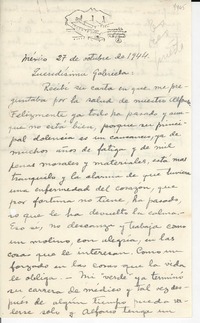 México 27 de octubre de 1944.
Queridísima Gabriela:
Recibí su carta en que me pre-
guntaba por la salud de nuestro Alfonso
Felizmente ya todo ha pasado y aun-
que no está bien, porque su princi-
pal dolencia es un cansancio, ya de
muchos años de fatiga y de mil
penas morales y materiales, está más
tranquilo y la alarma de que tuviera
una enfermedad del corazón, que
por fortuna no tiene, ha pasado,
lo que le ha devuelto la calma.
Eso sí, no descansa y trabaja como
un molino, con alegría, en las
cosas que le interesan. Como un
forzado en las cosas que la vida
le obliga - Mi ya terminó
su carrera de médico y tal vez des-
pués de algún tiempo pueda va-
lerse solo y Alfonso tenga un